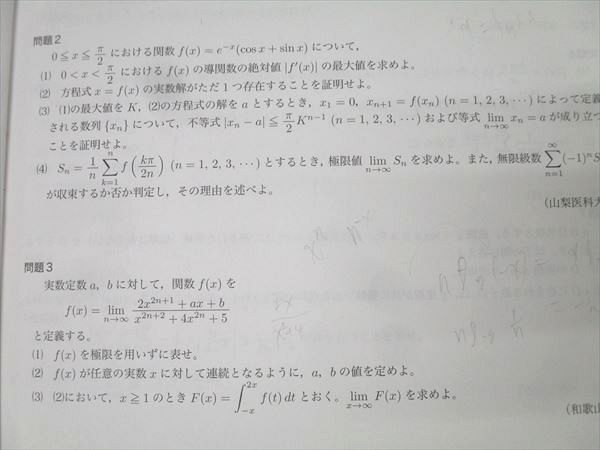 問題2
0≦x≦π/2 における関数 f(x)=e^{-x}(cos x+sin x) について，
(1) 0<x<π/2 における f(x) の導関数の絶対値 |f'(x)| の最大値を求めよ。
(2) 方程式 x=f(x) の実数解がただ1つ存在することを証明せよ。
(3) (1)の最大値を K, (2)の方程式の解を a とするとき，x_1=0, x_{n+1}=f(x_n) (n=1, 2, 3, ⋯) によって定義
される数列 {x_n} について，不等式 |x_n-a|≦π/2 K^{n-1} (n=1, 2, 3, ⋯) および等式 lim_{n→∞} x_n=a が成り立つ
ことを証明せよ。
(4) S_n=1/n Σ_{k=1}^{n} f(kπ/2n) (n=1, 2, 3, ⋯) とするとき，極限値 lim_{n→∞} S_n を求めよ。また，無限級数 Σ_{n=1}^{∞} (-1)^n S
が収束するか否か判定し，その理由を述べよ。
(山梨医科大
問題3
実数定数 a, b に対して，関数 f(x) を
f(x)=lim_{n→∞} (2x^{2n+1}+ax+b)/(x^{2n+2}+4x^{2n}+5)
と定義する。
(1) f(x) を極限を用いずに表せ。
(2) f(x) が任意の実数 x に対して連続となるように，a, b の値を定めよ。
(3) (2)において，x≧1 のとき F(x)=∫_{-x}^{2x} f(t) dt とおく。lim_{x→∞} F(x) を求めよ。
(和歌山